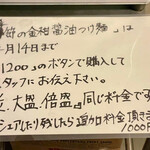 の金柑醤油つけ麺』は
月14日まで
1200』のボタンで購入して
タッフにお伝え下さい。
大盛、倍盛』同じ料金です
シェアしたり残したら追加料金頂き
1000円